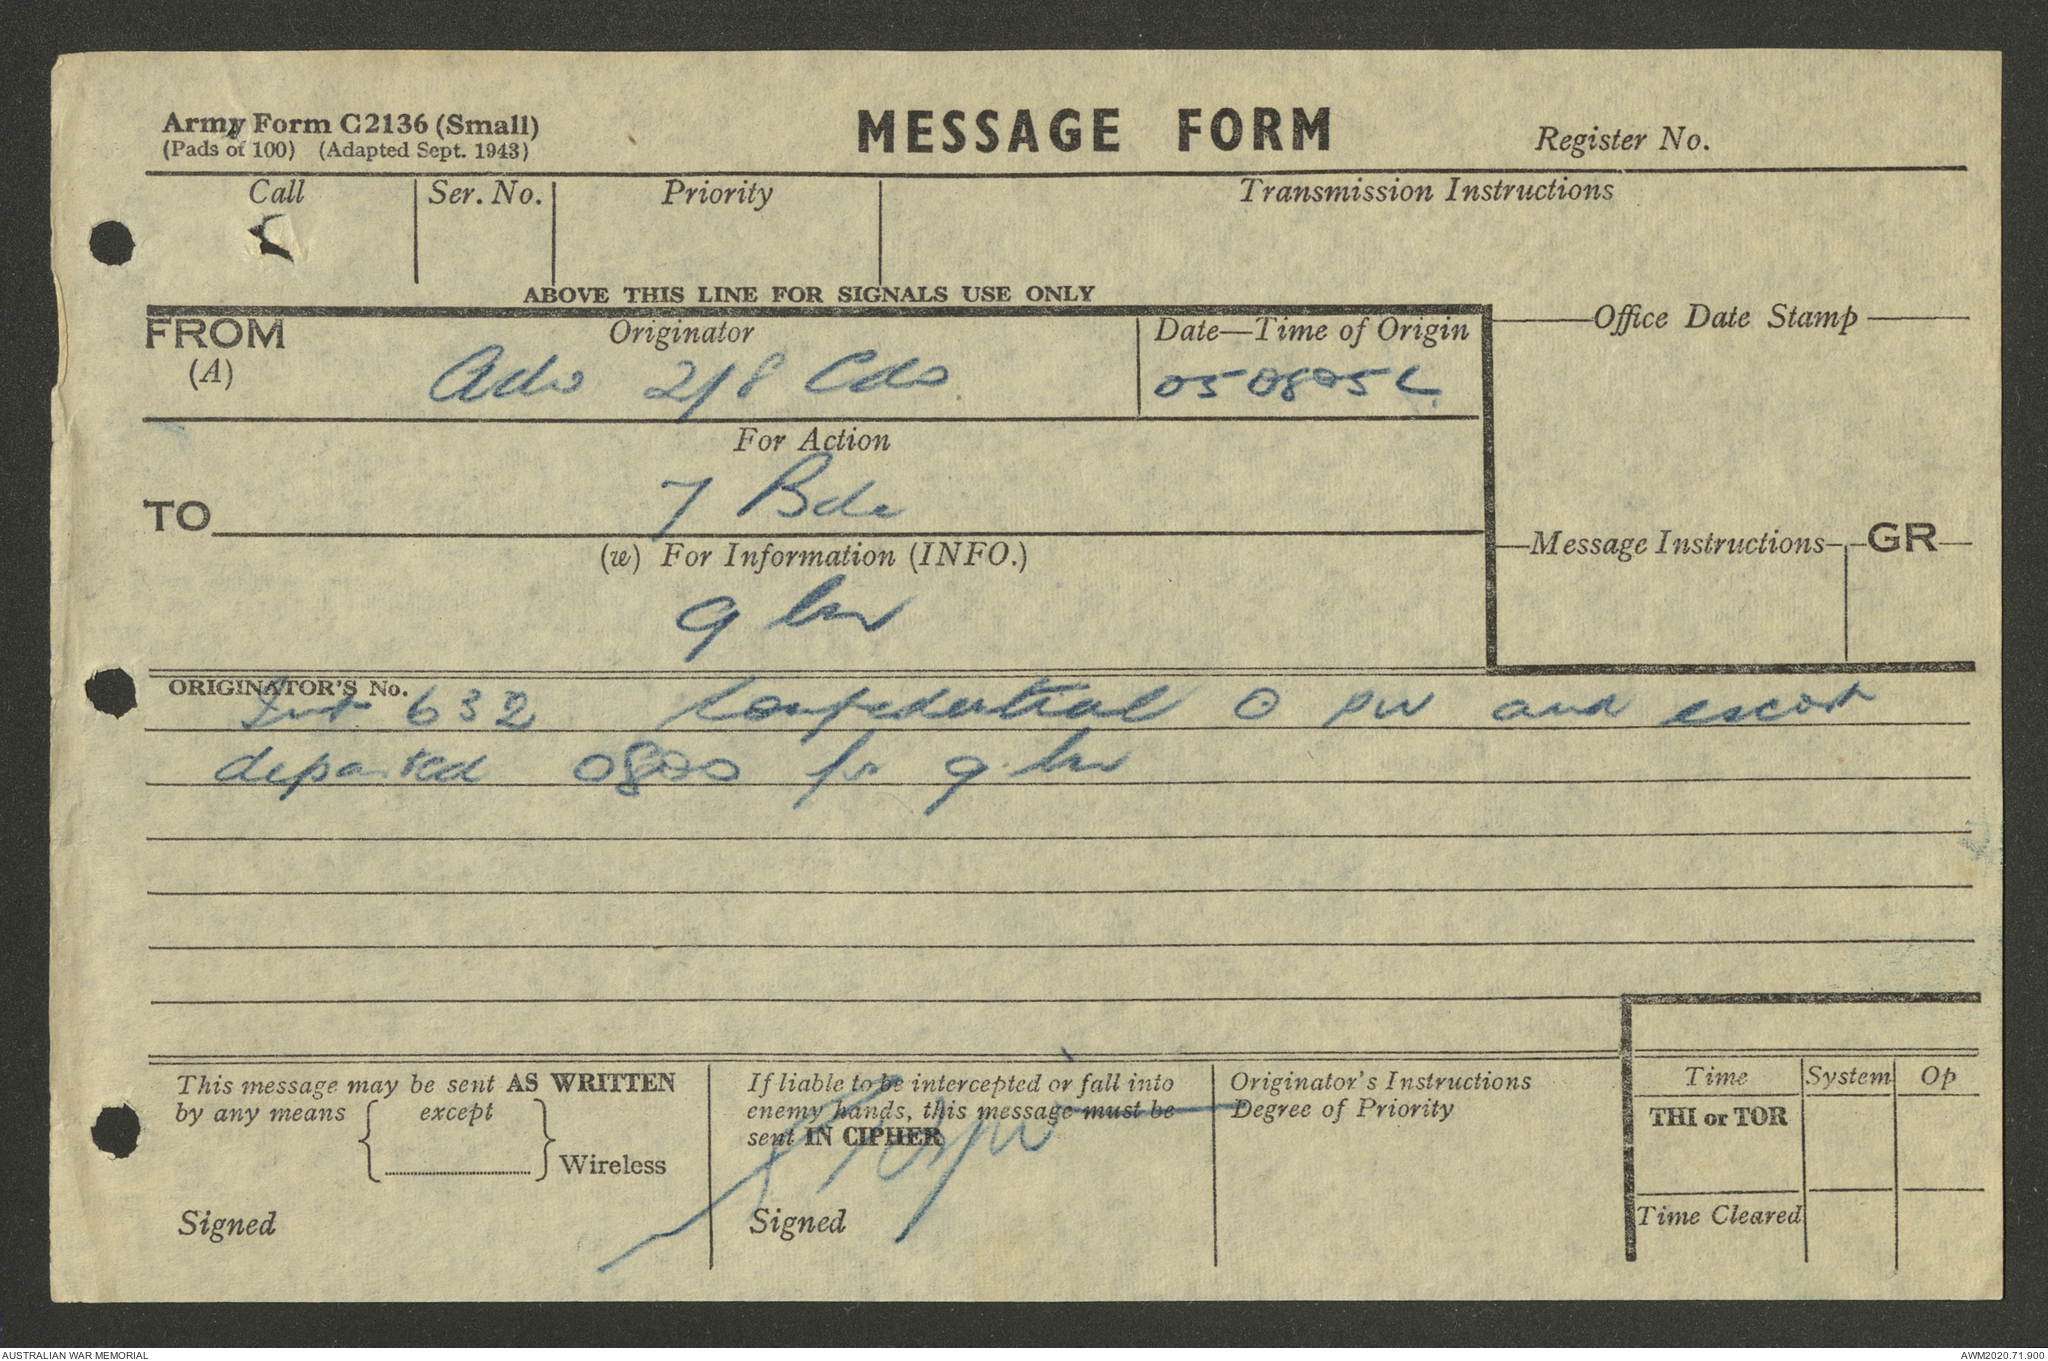 Army Form C2136 (Small)
(Pads of 100) (Adapted Sept. 1943)
MESSAGE FORM
Register No.
Call
Ser. No.
Priority
Transmission Instructions
ABOVE THIS LINE FOR SIGNALS USE ONLY
FROM
(A)
Originator
Adv 2/8 Cdo.
Date—Time of Origin
050805L
Office Date Stamp
For Action
TO
7 Bde
(w) For Information (INFO.)
9 bn
Message Instructions
GR
ORIGINATOR'S No.
Int 632 Confidential O PW and escort
departed 0800 for 9 bn
This message may be sent AS WRITTEN
by any means
except
Wireless
Signed
If liable to be intercepted or fall into
enemy hands, this message must be
sent IN CIPHER
Signed
Originator's Instructions
Degree of Priority
Time
System
Op
THI or TOR
Time Cleared
AUSTRALIAN WAR MEMORIAL
AWM2020.71.900